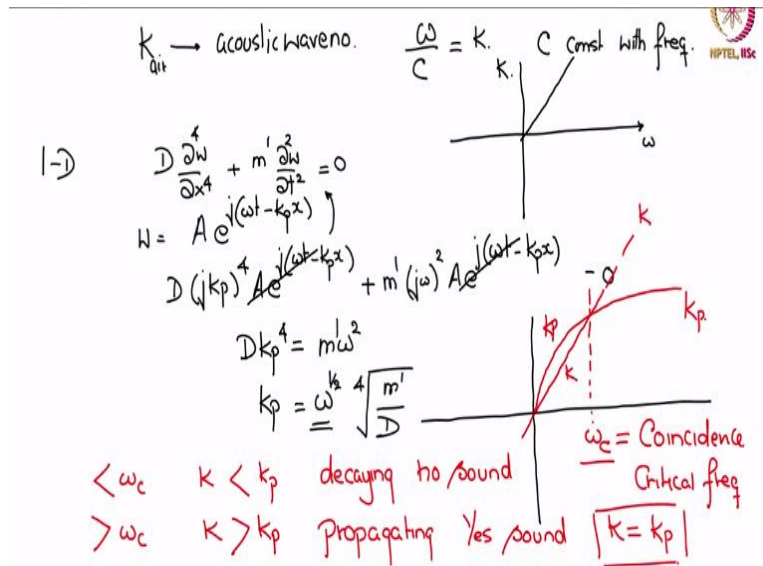 K_air → acoustic waveno. ω/C = K. C const with freq.
NPTEL, IISc
K.
ω
1-D D ∂⁴w/∂x⁴ + m' ∂²w/∂t² = 0
W = A e^{j(ωt-k_p x)}
D (jk_p)⁴ A e^{j(ωt-k_p x)} + m' (jω)² A e^{j(ωt-k_p x)}
D k_p⁴ = m' ω²
k_p = ω^{1/2} ⁴√(m'/D)
K
k_p
k_p
K
ω_c = Coincidence
Critical freq
< ω_c K < k_p decaying no sound
> ω_c K > k_p propagating Yes sound K = k_p